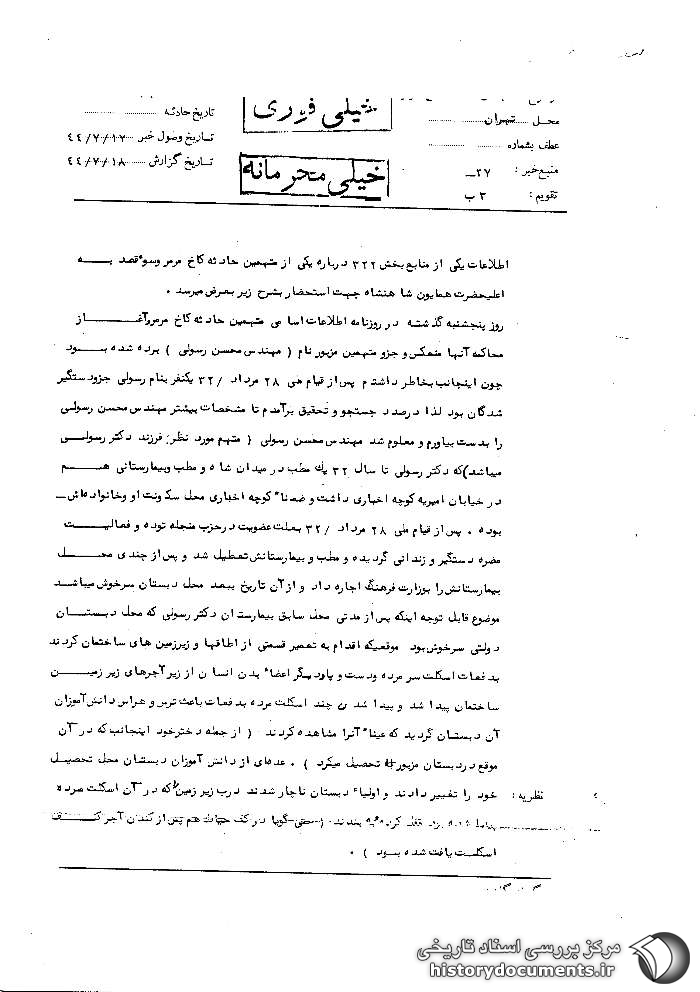 خیلی فوری
خیلی محرمانه
محل تهران
عطف بشماره
منبع خبر : ۲۷ــ
تقویم : ۳ ب
تاریخ حادثه
تاریخ وصول خبر ۴۴/۷/۱۷
تاریخ گزارش ۴۴/۷/۱۸
اطلاعات یکی از منابع بخش ۳۲۲ درباره یکی از متهمین حادثه کاخ مرمر وسوءقصد بـــه
اعلیحضرت همایون شاهنشاه جهت استحضار بشرح زیر بعرض میرسد .
روز پنجشنبه گذشته در روزنامه اطلاعات اسامی متهمین حادثه کاخ مرمر وآغــاز
محاکمه آنها منعکس و جزو متهمین مزبور نام ( مهندس محسن رسولی ) برده شده بــود
چون اینجانب بخاطر داشتم پس از قیام ملی ۲۸ مرداد /۳۲ یکنفر بنام رسولی جزودستگیر
شدگان بود لذا درصدد جستجو و تحقیق برآمدم تا مشخصات بیشتر مهندس محسن رسولی
را بدست بیاورم و معلوم شد مهندس محسن رسولی ( متهم مورد نظر) فرزند دکتر رسولــی
میباشد)که دکتر رسولی تا سال ۳۲ یك مطب در میدان شاه و مطب وبیمارستانی هـــم
در خیابان امیریه کوچه اخباری داشت و ضمناً کوچه اخباری محل سکونت او وخانواده‌اش
بوده . پس از قیام ملی ۲۸ مرداد /۳۲ بعلت عضویت درحزب منحله توده و فعالیـت
مضره دستگیر و زندانی گردیده و مطب و بیمارستانش تعطیل شد و پس از چندی محــل
بیمارستانش را بوزارت فرهنگ اجاره داد و از آن تاریخ ببعد محل دبستان سرخوش میباشـد
موضوع قابل توجه اینکه پس از مدتی محل سابق بیمارستان دکتر رسولی که محل دبستــان
دولتی سرخوش بود موقعیکه اقدام به تعمیر قسمتی از اطاقها و زیرزمین های ساختمان کردند
بدفعات اسکلت سر مرده ودست و پاودیگر اعضاء بدن انسان از زیر آجرهای زیر زمیــن
ساختمان پیدا شد و پیدا شدن چند اسکلت مرده بدفعات باعث ترس و هراس دانش آموزان
آن دبستان گردید که عیناً آنرا مشاهده کردند ( از جمله دخترخود اینجانب که در آن
موقع دردبستان مزبور تحصیل میکرد ) . عده‌ای از دانش آموزان دبستان محل تحصیـل
نظریه : خود را تغییر دادند و اولیاء دبستان ناچار شدند درب زیر زمین را که در آن اسکلت مرده
پیدا شده بود قفل کرده به بندند ( حتی گویا در کف حیاط هم پس از کندن آجر کــف
اسکلـت یافت شده بــود ) .
مرکز بررسی اسناد تاریخی
historydocuments.ir